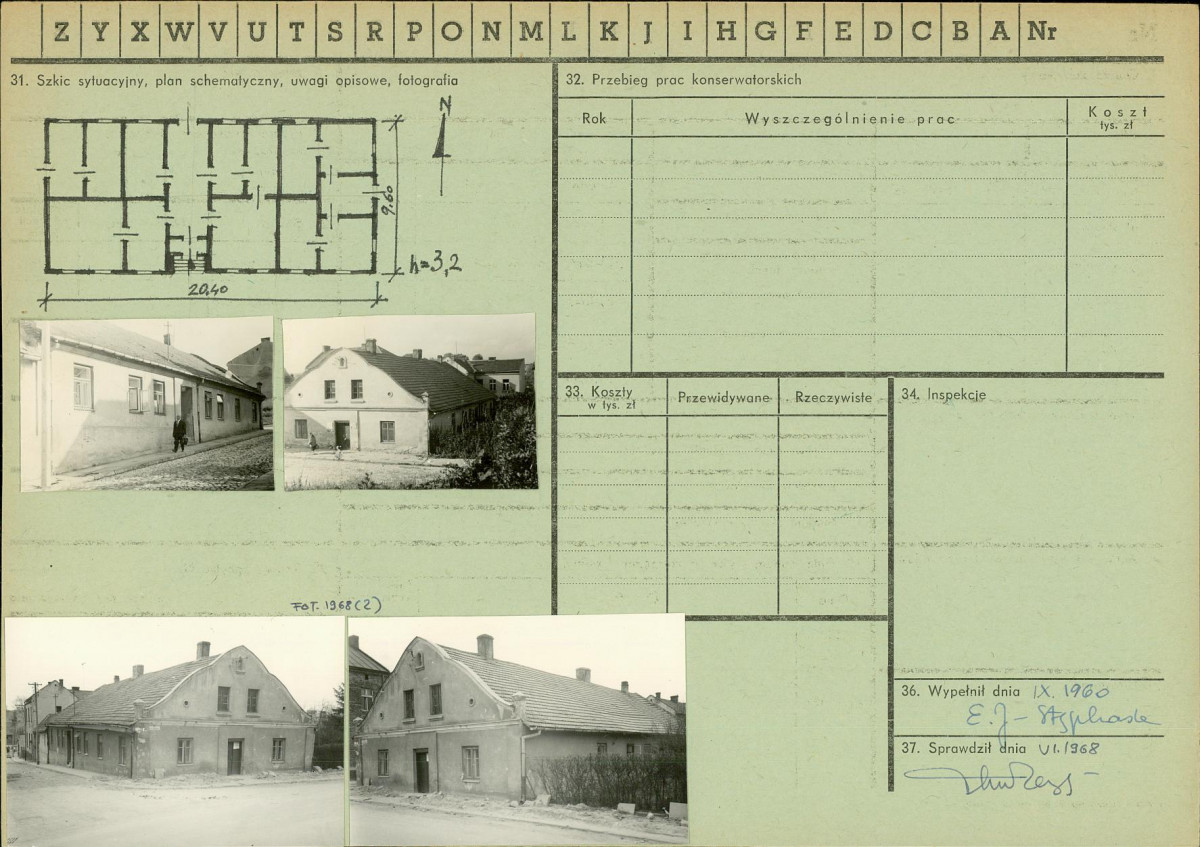 Z Y X W V U T S R P O N M L K J I H G F E D C B A Nr
31. Szkic sytuacyjny, plan schematyczny, uwagi opisowe, fotografia
N
9.60
h=3,2
20.40
FOT. 1968 (2)
32. Przebieg prac konserwatorskich
Rok
Wyszczególnienie prac
Koszt
tys. zł
33. Koszty
w tys. zł
Przewidywane
Rzeczywiste
34. Inspekcje
36. Wypełnił dnia IX. 1960
E. J-
37. Sprawdził dnia VI. 1968